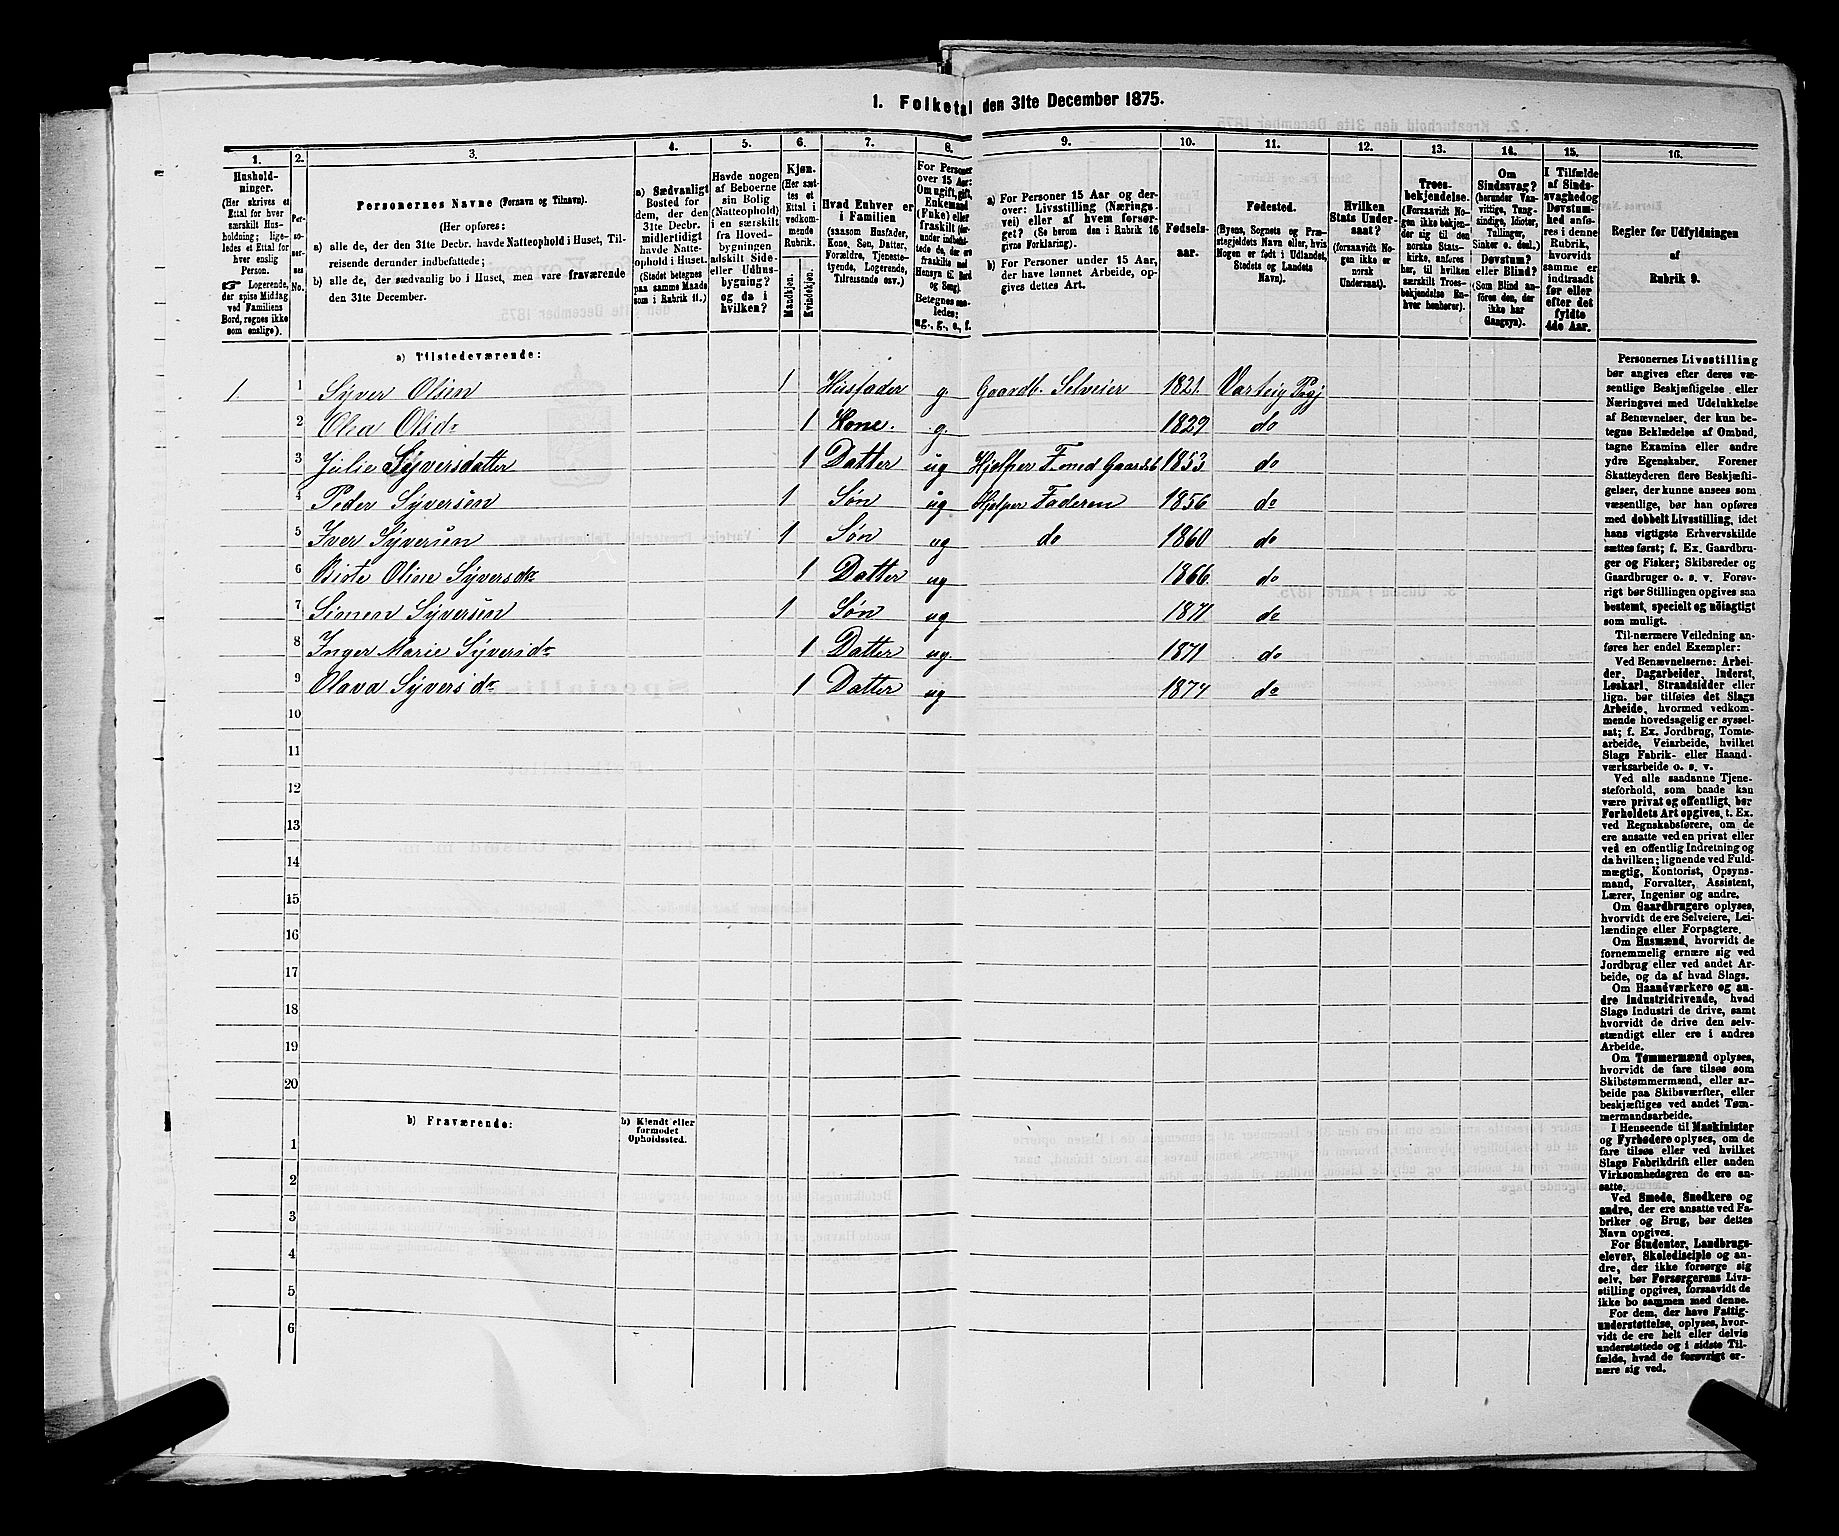 1. Folketal den 31te December 1875.
1. 2. 3. 4. 5. 6. 7. 8. 9. 10. 11. 12. 13. 14. 15. 16.
Hushold-
ninger.
(Her skrives et
Ettal for hver
særskilt Hus-
holdning; lige-
ledes et Ettal for
hver enslig
Person.
☞ Logerende,
der spise Middag
ved Familiens
Bord, regnes ikke
som enslige).
Per-
so-
ner-
nes
No.
Personernes Navne (Fornavn og Tilnavn).
(Her opføres:
a) alle de, der den 31te Decbr. havde Natteophold i Huset, Til-
reisende derunder indbefattede;
b) alle de, der sædvanlig bo i Huset, men vare fraværende
den 31te December.
a) Sædvanligt
Bosted for
dem, der den
31te Decbr.
midlertidigt
havde Natte-
ophold i Huset.
(Stedet betegnes
paa samme Maade
som i Rubrik 11.)
Havde nogen
af Beboerne
sin Bolig
(Natteophold)
i en særskilt
fra Hoved-
bygningen
adskilt Side-
eller Udhus-
bygning?
og da i
hvilken?
Kjøn.
(Her sæt-
tes et
Ettal i
vedkom-
mende
Rubrik.
Mandkjøn.
Kvindekjøn.
Hvad Enhver er
i Familien
(saasom Husfader,
Kone, Søn, Datter,
Forældre, Tjeneste-
tyende, Logerende,
Tilreisende osv.)
For Personer
over 15 Aar:
Om ugift, gift,
Enkemand
(Enke) eller
fraskilt
Betegnes saa-
ledes:
ug., g., e., f.
a) For Personer 15 Aar og der-
over: Livsstilling (Nærings-
vei) eller af hvem forsør-
get? (Se herom den i Rubrik 16
givne Forklaring).
b) For Personer under 15 Aar,
der have lønnet Arbeide, op-
gives dettes Art.
Fødsels-
aar.
Fødested.
(Byens, Sognets og Præ-
stegjeldets Navn eller, hvis
Nogen er født i Udlandet,
Stedets og Landets
Navn).
Hvilken
Stats Under-
saat?
(forsaavidt No-
gen ikke er
norsk
Undersaat).
Troes-
bekjendelse.
(Forsaavidt No-
gen ikke bekjen-
der sig til den
norske Stats-
kirke, anføres
her, til hvilken
særskilt Troes-
bekjendelse En-
hver henhører).
Om
Sindssvag?
(herunder Van-
vittige, Tung-
sindige, Idioter,
Tullinger,
Sinker o. desl.).
Døvstum?
eller Blind?
(Som Blind an-
føres den, der
ikke har
Gangsyn).
I Tilfælde
af Sinds-
svaghed og
Døvstum-
hed anfø-
res i denne
Rubrik,
hvorvidt
samme er
indtraadt
før eller
efter det
fyldte
4de Aar.
Regler for Udfyldningen
af
Rubrik 9.
a) Tilstedeværende:
1. 1 Syver Olsen 1 Husfader g. Gaardb. Selveier 1821. Varteig Prgj
2 Olea Olsdr 1 Kone. g. 1829 do
3 Julie Syversdatter 1 Datter ug Hjelper F. med Gaardsb 1853 do
4 Peder Syversen 1 Søn ug Hjelper Faderen 1856 do
5 Iver Syversen 1 Søn ug do 1860 do
6 Birte Oline Syversdr 1 Datter ug 1866. do
7 Simen Syversen 1 Søn ug 1871 do
8 Inger Marie Syversdr 1 Datter ug. 1871 do
9 Olava Syversdr 1 Datter ug 1874 do
10
11
12
13
14
15
16
17
18
19
20
b) Fraværende: b) Kjendt eller
formodet
Opholdssted.
1
2
3
4
5
6
Personernes Livsstilling
bør angives efter deres væ-
sentlige Beskjæftigelse eller
Næringsvei med Udelukkelse
af Benævnelser, der kun be-
tegne Beklædelse af Ombud,
tagne Examina eller andre
ydre Egenskaber. Forener
Skatteyderen flere Beskjæfti-
gelser, der kunne ansees som
væsentlige, bør han opføres
med dobbelt Livsstilling, idet
hans vigtigste Erhvervskilde
sættes først; f. Ex. Gaardbru-
ger og Fisker; Skibsreder og
Gaardbruger o. s. v. Forøv-
rigt bør Stillingen opgives saa
bestemt, specielt og nöiagtigt
som muligt.
Til nærmere Veiledning an-
føres her endel Exempler:
Ved Benævnelserne: Arbei-
der, Dagarbeider, Inderst,
Løskarl, Strandsidder eller
lign. bør tilføies det Slags
Arbeide, hvormed vedkom-
mende hovedsagelig er syssel-
sat; f. Ex. Jordbrug, Tomte-
arbeide, Veiarbeide, hvilket
Slags Fabrik- eller Haand-
værksarbeide o. s. v.
Ved alle saadanne Tjene-
steforhold, som baade kan
være privat og offentligt, bør
Forholdets Art opgives, t. Ex.
ved Regnskabsførere, om de
ere ansatte ved en privat eller
ved en offentlig Indretning og
da hvilken; lignende ved Fuld-
mægtig, Kontorist, Opsyns-
mand, Forvalter, Assistent,
Lærer, Ingeniør og andre.
Om Gaardbrugere oplyses,
hvorvidt de ere Selveiere, Lei-
lændinge eller Forpagtere.
Om Husmænd, hvorvidt de
fornemmelig ernære sig ved
Jordbrug eller ved andet Ar-
beide, og da af hvad Slags.
Om Haandværkere og an-
dre Industridrivende, hvad
Slags Industri de drive, samt
hvorvidt de drive den selv-
stændigt eller ere i andres
Arbeide.
Om Tømmermænd oplyses,
hvorvidt de fare tilsøs som
Skibstømmermænd, eller ar-
beide paa Skibsværfter, eller
beskjæftiges ved andet Tøm-
mermandsarbeide.
I Henseende til Maskinister
og Fyrbødere oplyses, om de
fare tilsøs eller ved hvilket
Slags Fabrikdrift eller anden
Virksomhedsgren de ere an-
satte.
Ved Smede, Snedkere og
andre, der ere ansatte ved Fa-
briker og Brug, bør dettes
Navn opgives.
For Studenter, Landbrugs-
elever, Skoledisciple og an-
dre, der ikke forsørge sig
selv, bør Forsørgerens Livs-
stilling opgives, forsaavidt de
ikke bo sammen med denne.
For dem, der have Fattig-
understøttelse, oplyses, hvor-
vidt de ere helt eller delvis
understøttede og i sidste Til-
fælde, hvad de forøvrigt er-
nære sig ved.